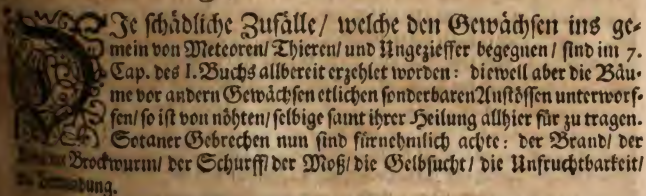 DJe schädliche Zufälle/ welche den Gewächsen ins ge-
mein von Meteoren/ Thieren/ und Ungezieffer begegnen/ sind im 7.
Cap. des I. Buchs allbereit erzehlet worden: dieweil aber die Bäu-
me vor andern Gewächsen etlichen sonderbaren Anstössen unterworf-
fen/ so ist von nöhten/ selbige samt ihrer Heilung allhier für zu tragen.
Sotaner Gebrechen nun sind fürnehmlich achte: der Brand/ der
Brockwurm/ der Schurff/ der Moß/ die Gelbsucht/ die Unfruchtbarkeit/